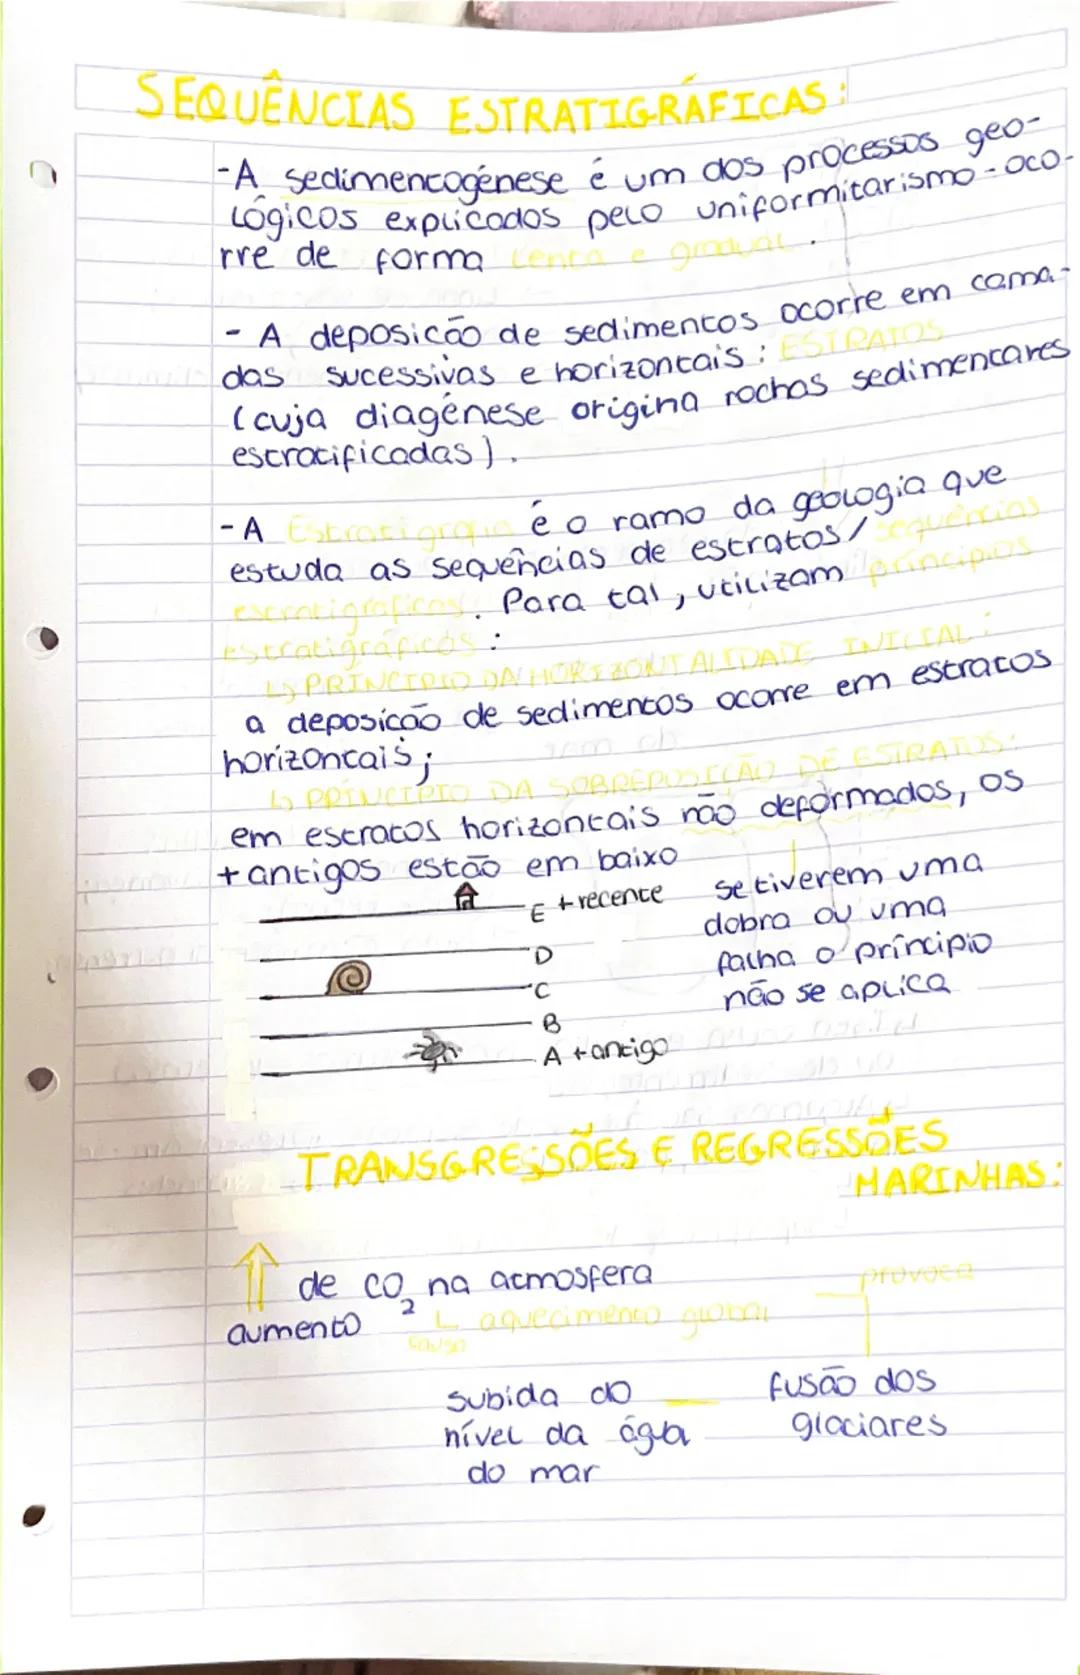 SEQUÊNCIAS ESTRATIGRÁFICAS:
- A sedimentogénese é um dos processos geo-
lógicos explicados pelo uniformitarismo - oco-
rre de forma lenta e gradual.
- A deposição de sedimentos ocorre em cama-
das sucessivas e horizontais: ESTRATOS
(cuja diagénese origina rochas sedimentares
estratificadas).
- A Estratigrafia é o ramo da geologia que
estuda as sequências de estratos/sequências
estratigráficas. Para tal, utilizam princípios
estratigráficos:
↳ PRINCÍPIO DA HORIZONTALIDADE INICIAL:
a deposição de sedimentos ocorre em estratos
horizontais;
↳ PRINCÍPIO DA SOBREPOSIÇÃO DE ESTRATOS:
em estratos horizontais não deformados, os
+ antigos estão em baixo
E + recente
D
C
B
A + antigo
se tiverem uma
dobra ou uma
falha o príncipio
não se aplica
TRANSGRESSÕES E REGRESSÕES
MARINHAS:
de CO2 na atmosfera
aumento
causa
aquecimento global
provoca
subida do
nível da água
do mar
fusão dos
glaciares